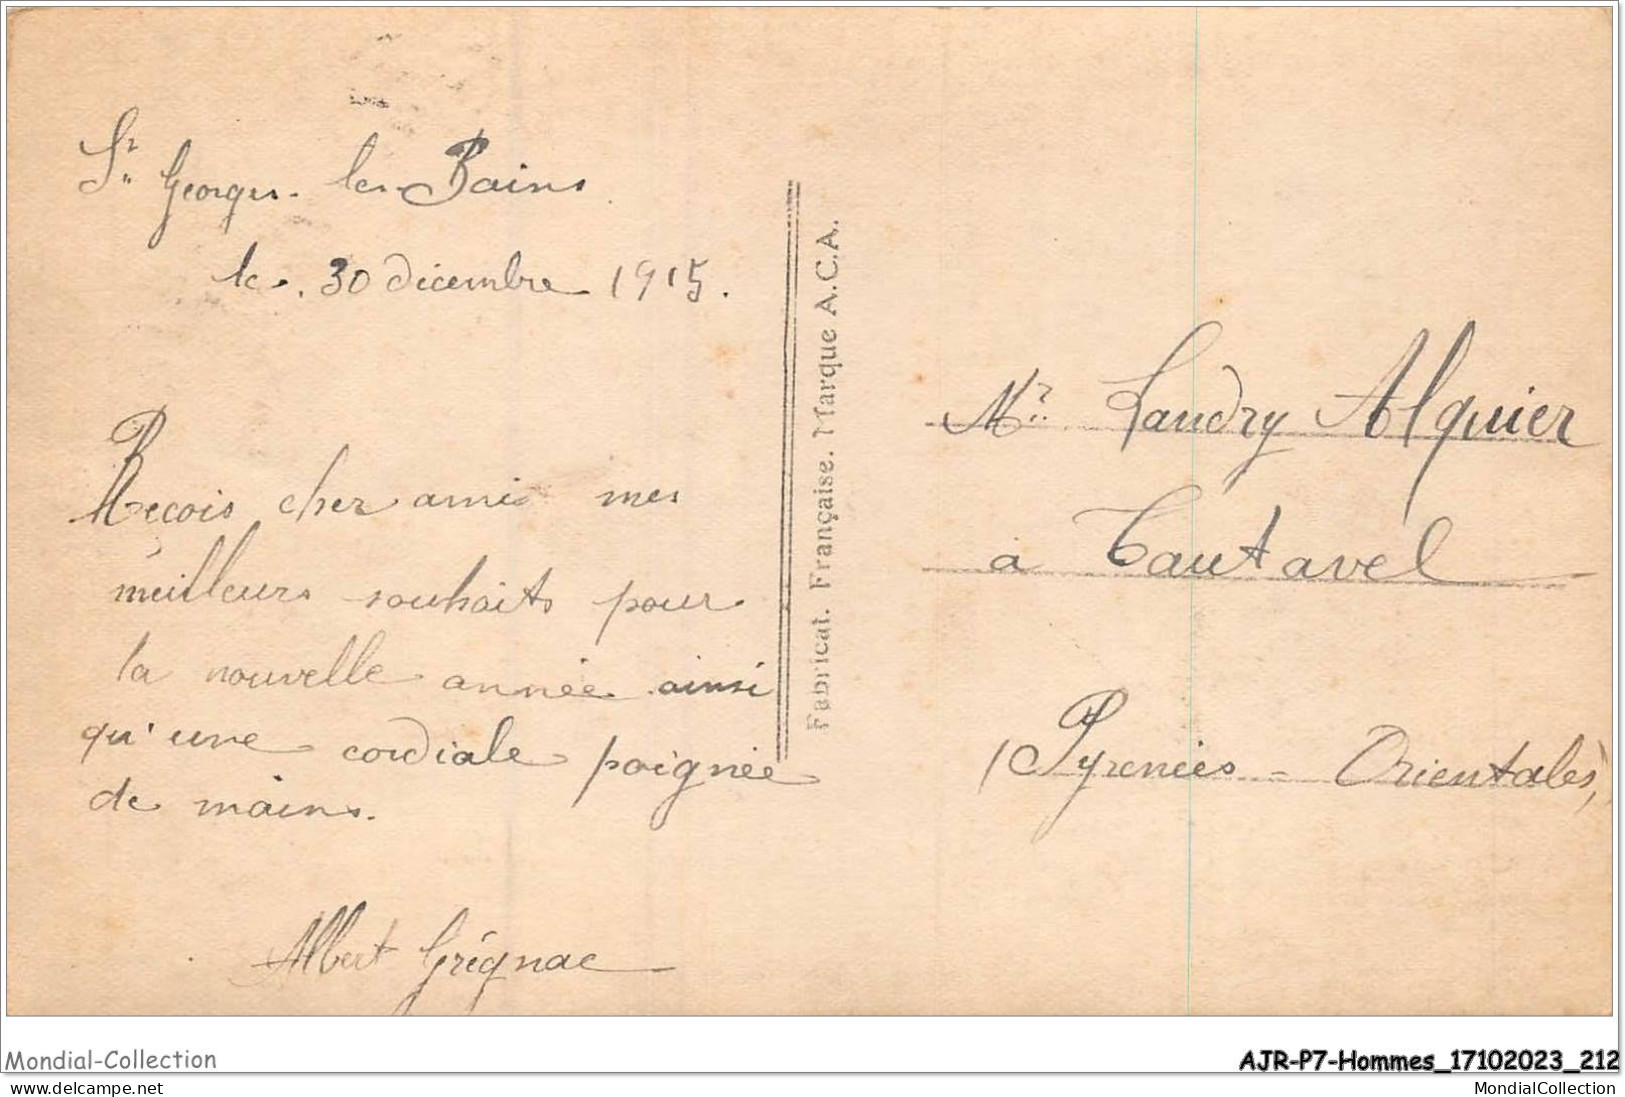 St Georges-les-Bains
le. 30 décembre 1915.
Reçois cher ami mes
meilleurs souhaits pour
la nouvelle année ainsi
qu'une cordiale poignée
de mains.
Albert Grégnac
Fabricat. Française. Marque A.C.A.
Mr. Landry Alquier
à Tautavel
(Pyrénées-Orientales)
Mondial-Collection
AJR-P7-Hommes_17102023_212
www.delcampe.net
MondialCollection